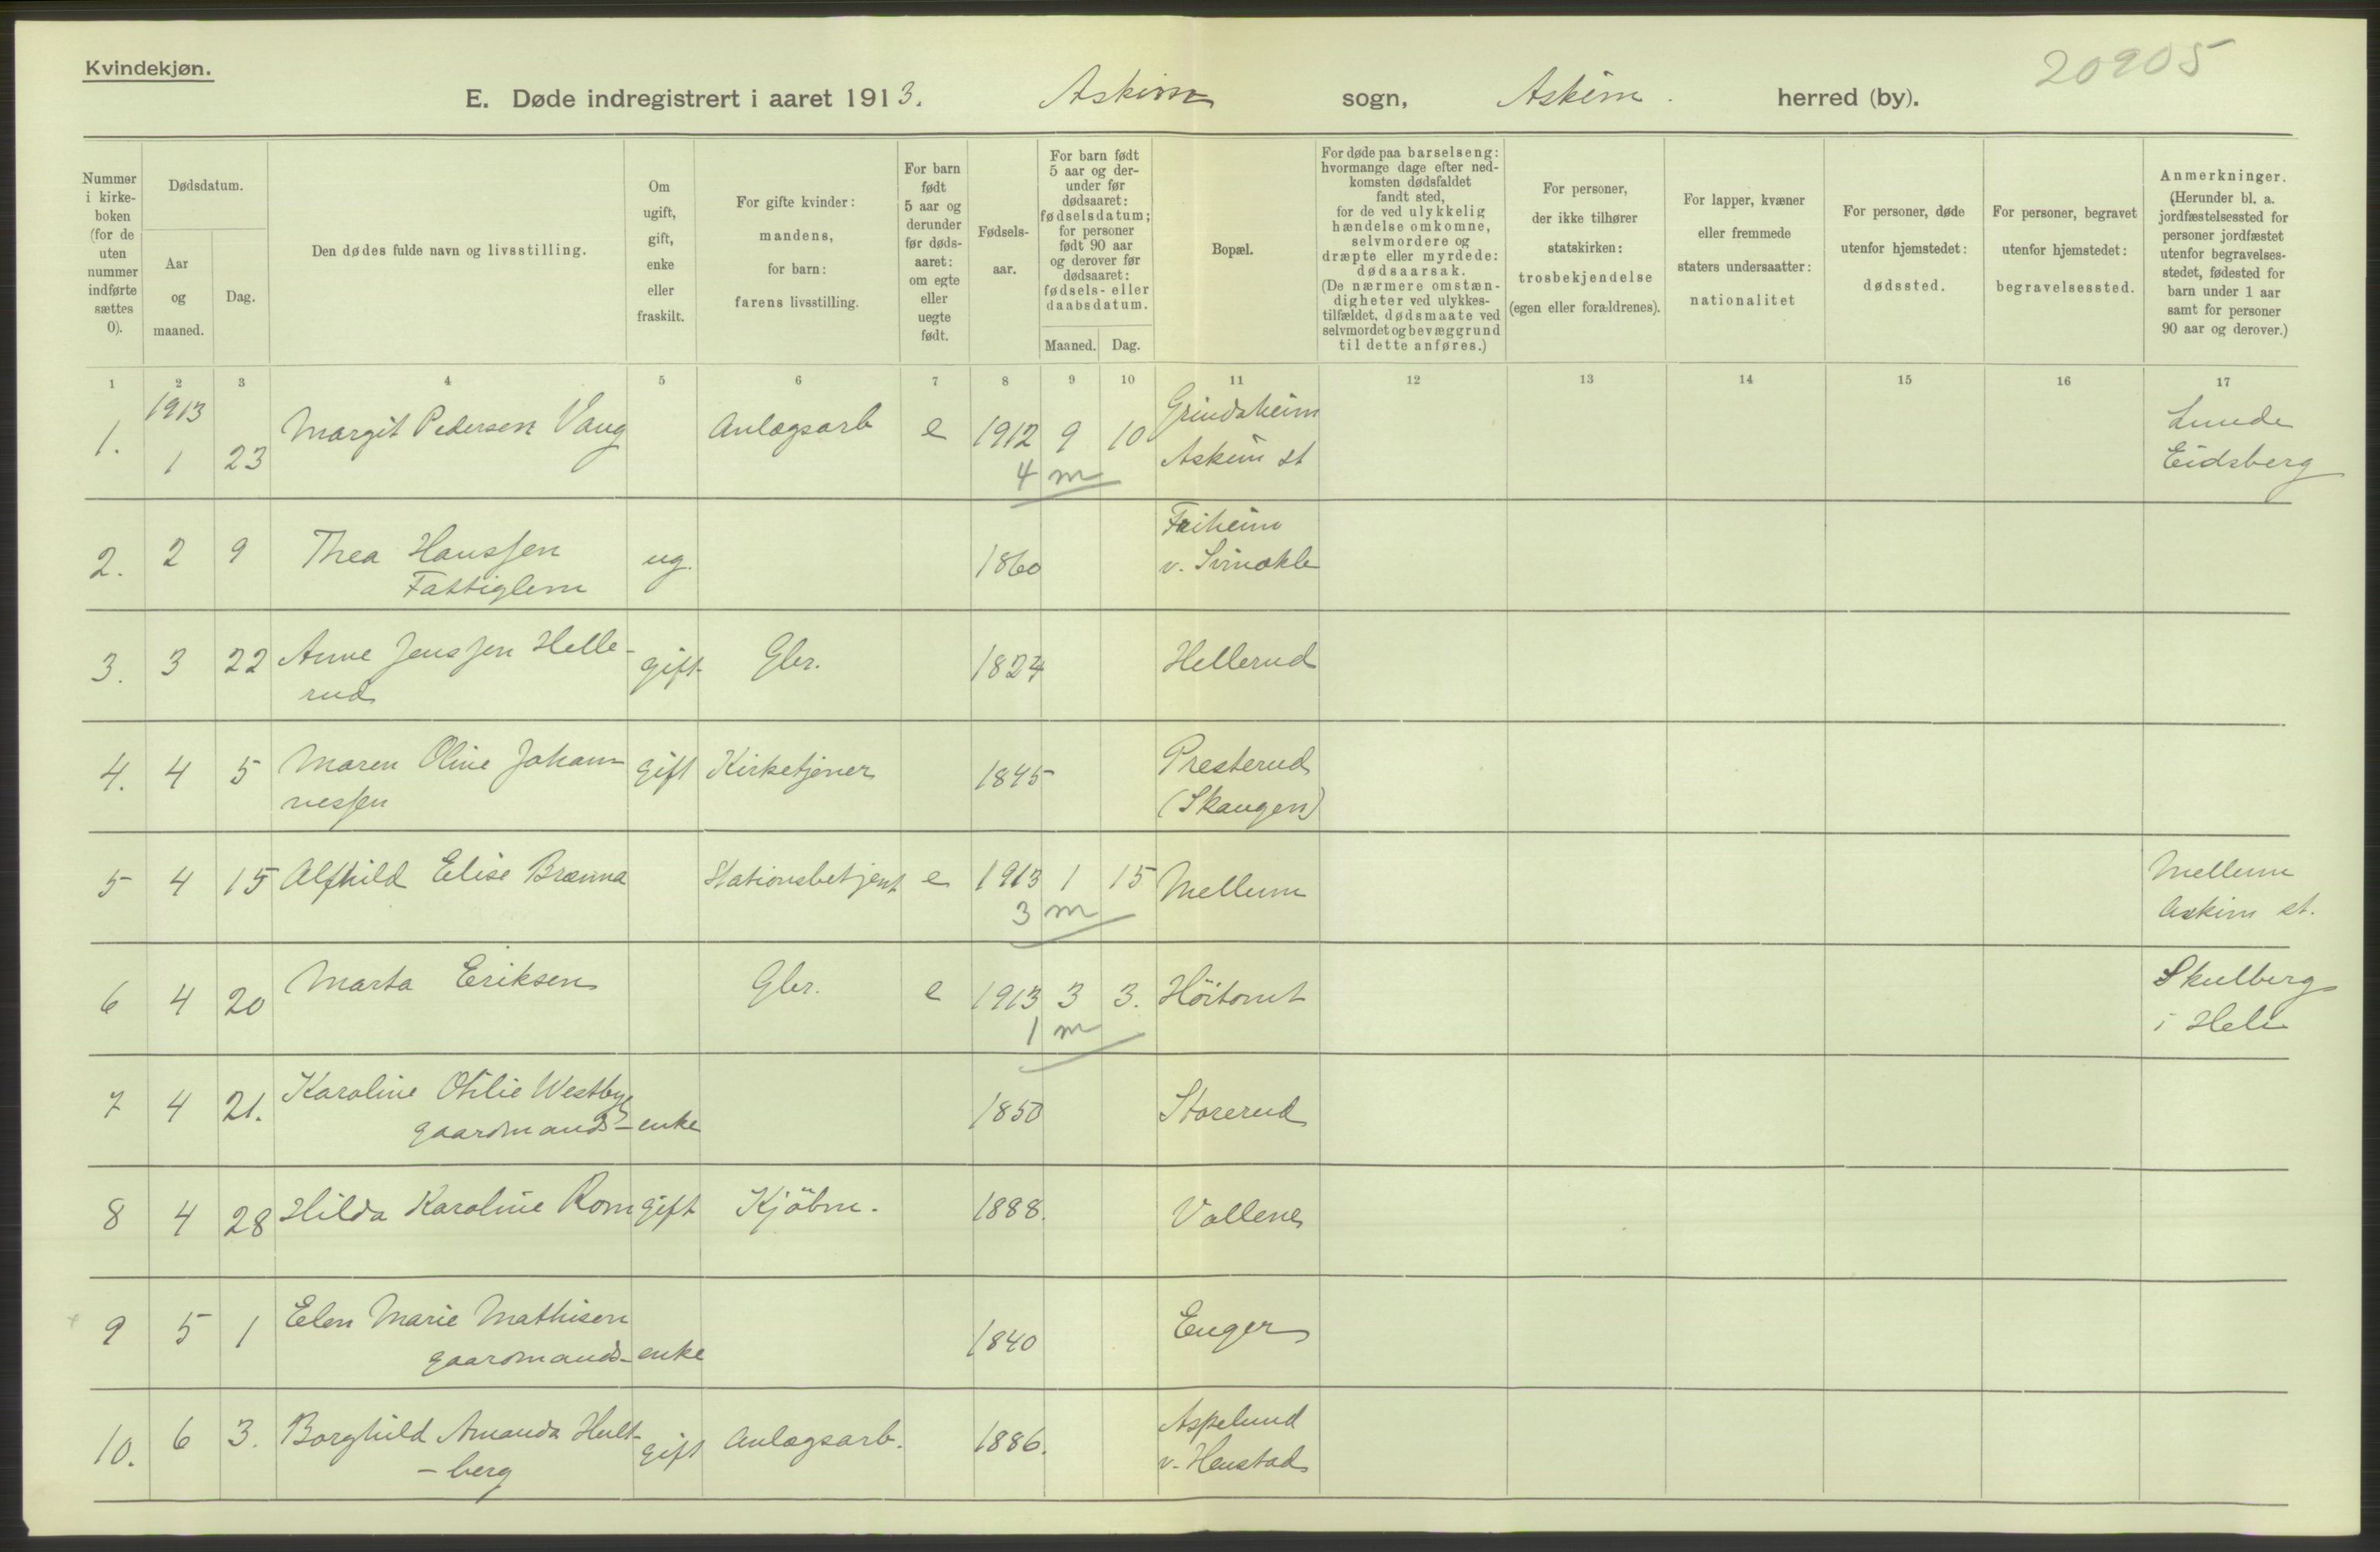 Kvindekjøn.
20905
E. Døde indregistrert i aaret 1913. Askim sogn, Askim. herred (by).
Nummer i kirkeboken (for de uten nummer indførte sættes 0).
Dødsdatum.
Aar og maaned.
Dag.
Den dødes fulde navn og livsstilling.
Om ugift, gift, enke eller fraskilt.
For gifte kvinder: mandens, for barn: farens livsstilling.
For barn født 5 aar og derunder før dødsaaret: om egte eller uegte født.
Fødselsaar.
For barn født 5 aar og derunder før dødsaaret: fødselsdatum; for personer født 90 aar og derover før dødsaaret: fødsels- eller daabsdatum.
Maaned. Dag.
Bopæl.
For døde paa barselseng: hvormange dage efter nedkomsten dødsfaldet fandt sted, for de ved ulykkelig hændelse omkomne, selvmordere og dræpte eller myrdede: dødsaarsak. (De nærmere omstændigheter ved ulykkestilfældet, dødsmaate ved selvmordet og bevæggrund til dette anføres.)
For personer, der ikke tilhører statskirken: trosbekjendelse (egen eller forældrenes).
For lapper, kvæner eller fremmede staters undersaatter: nationalitet
For personer, døde utenfor hjemstedet: dødssted.
For personer, begravet utenfor hjemstedet: begravelsessted.
Anmerkninger. (Herunder bl. a. jordfæstelsessted for personer jordfæstet utenfor begravelsesstedet, fødested for barn under 1 aar samt for personer 90 aar og derover.)
1 2 3 4 5 6 7 8 9 10 11 12 13 14 15 16 17
1. 1913 1 23 Margit Pedersen Vaug Anlægsarb e 1912 9 10 Grindaheim Askim st Lunde Eidsberg
4 m
2. 2 9 Thea Hanssen Fattiglem ug. 1860 Friheim v. Svinokle
3. 3 22 Anne Jenssen Hellerud gift Gbr. 1824 Hellerud
4. 4 5 Maren Oline Johannessen gift Kirketjener 1845 Presterud (Skaugen)
5 4 15 Alfhild Elise Brænna Stationsbetjent e 1913 1 15 Mellum Mellum Askim st.
3 m
6 4 20 Marta Eriksen Gbr. e 1913 3 3. Höitomt Skulberg i Heli
1 m
7 4 21. Karoline Otilie Westby gaardmands-enke 1850 Storerud
8 4 28 Hilda Karoline Rom gift Kjöbm. 1888. Vollene
9 5 1 Elen Marie Mathisen gaardmands-enke 1840 Enger
10. 6 3. Borghild Amanda Hult-berg gift Anlægsarb. 1886. Aspelund v. Henstad